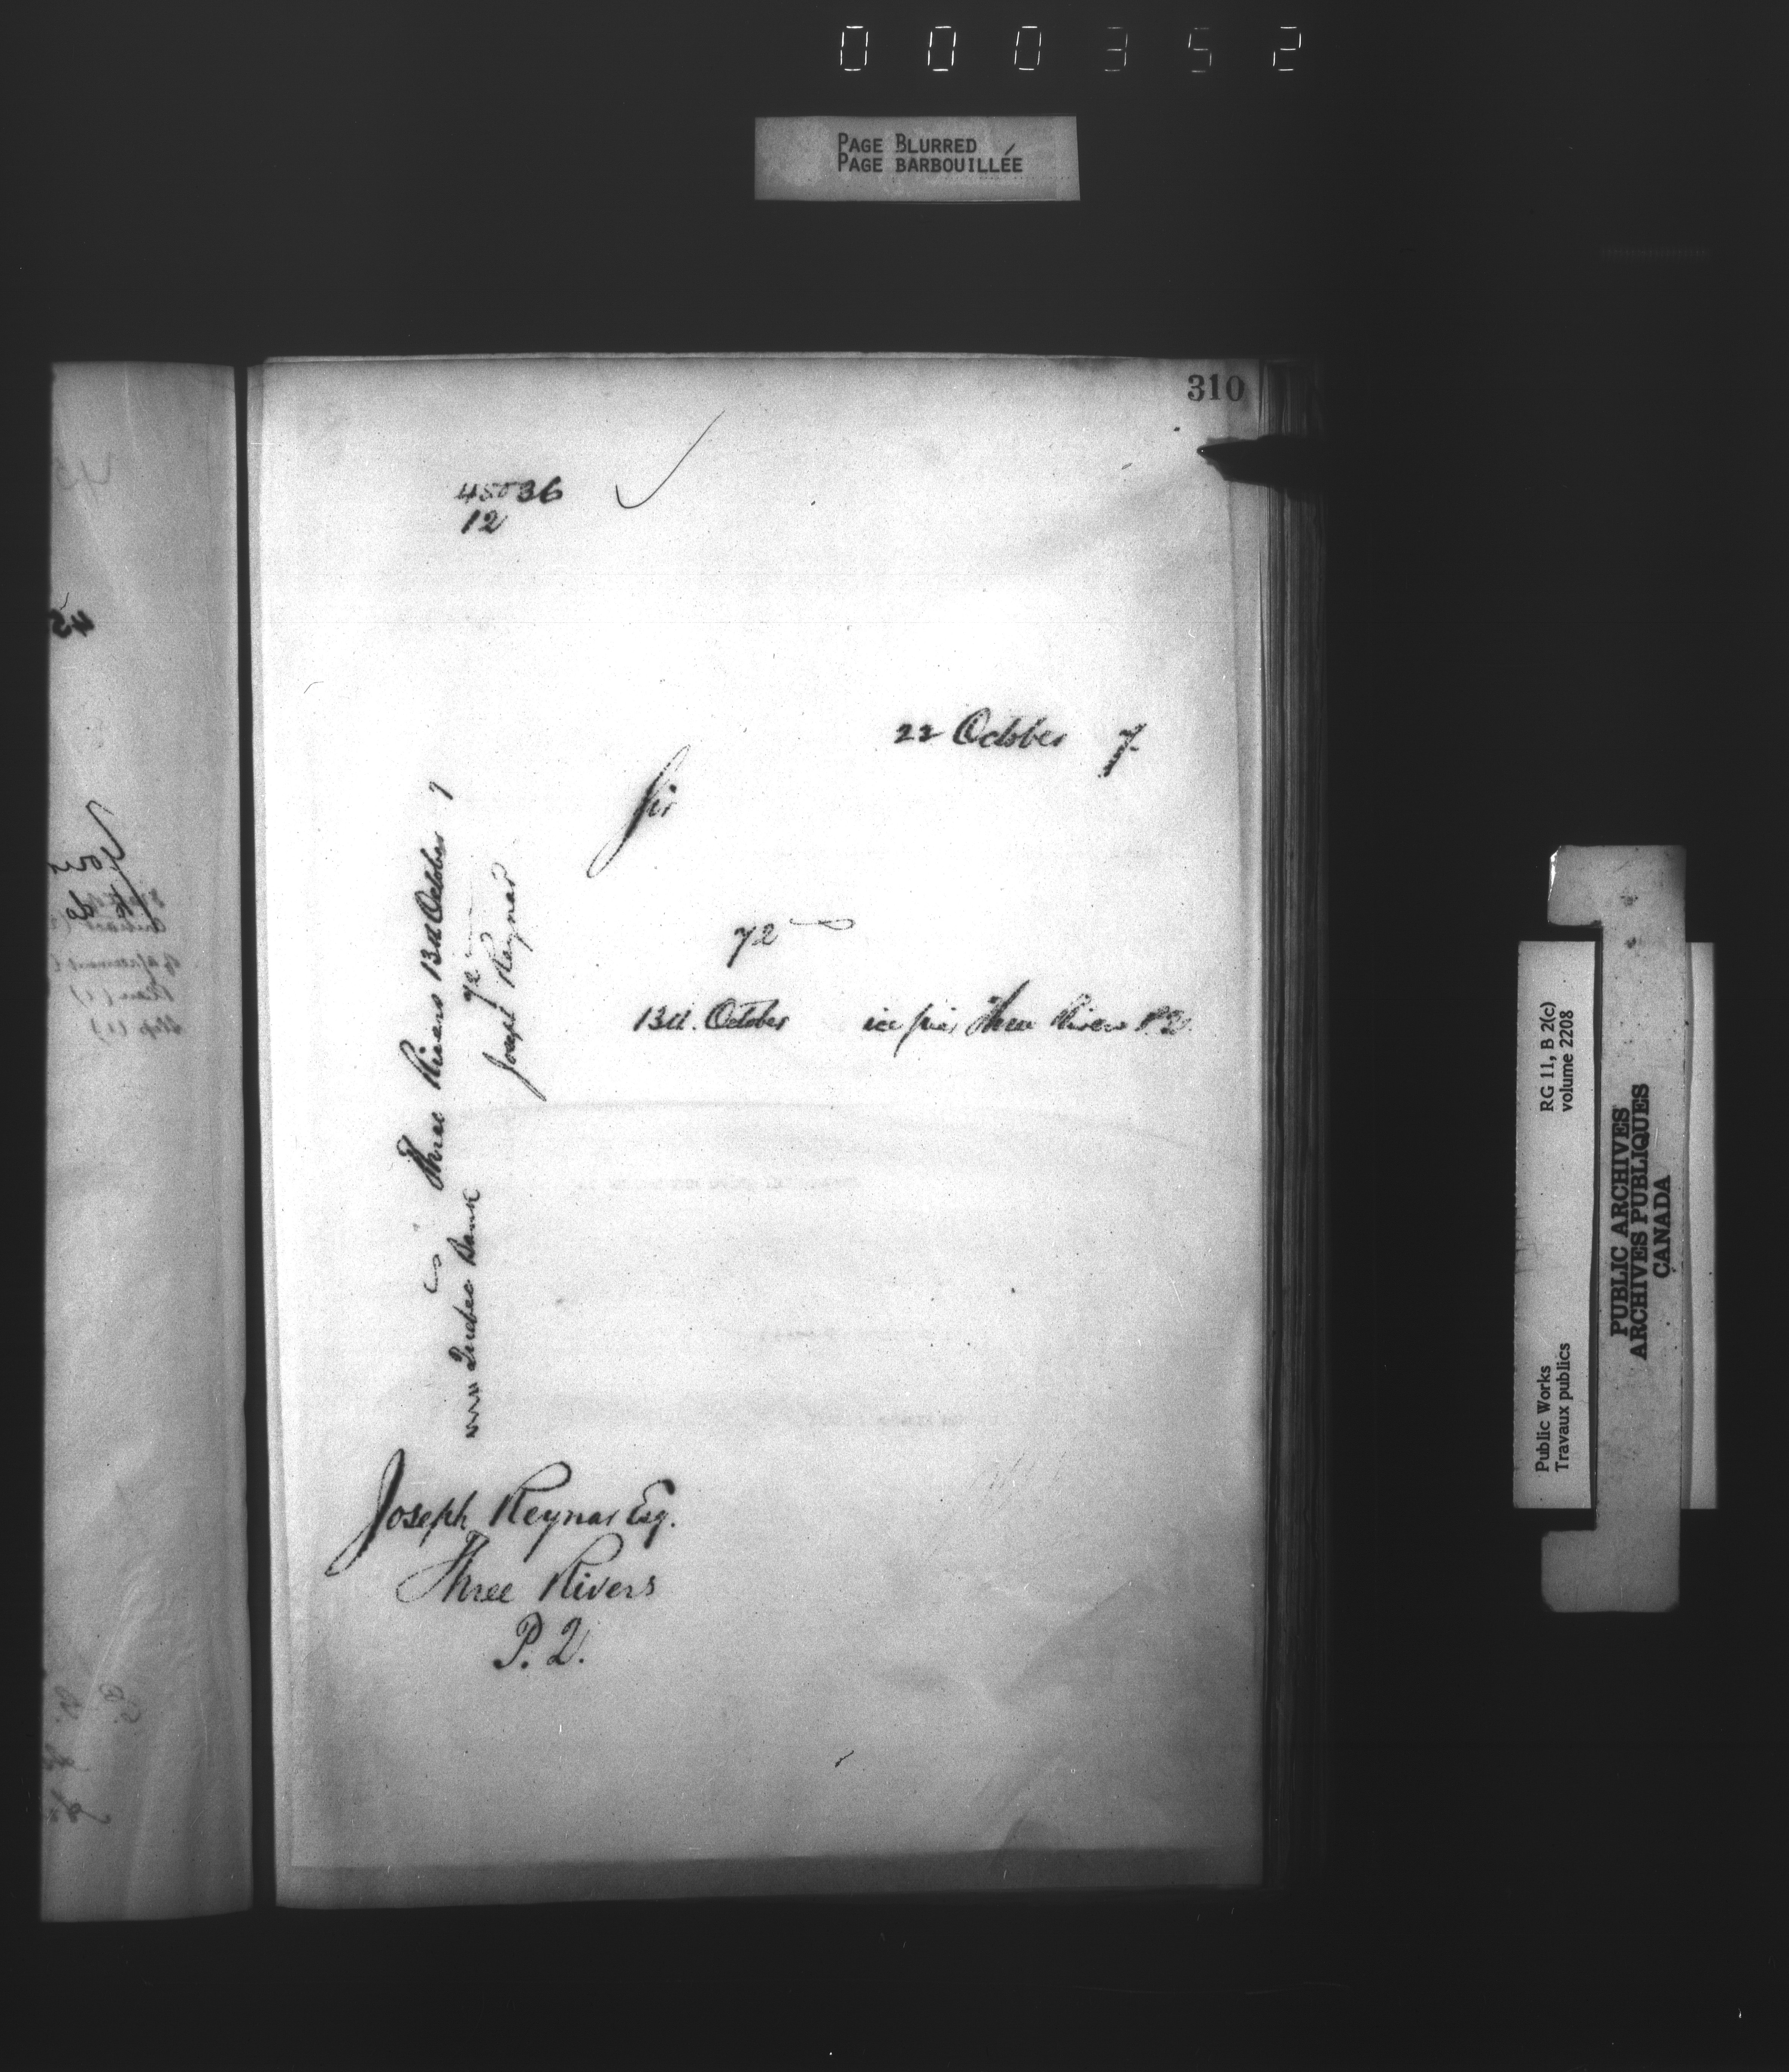 000352
PAGE BLURRED
PAGE BARBOUILLÉE
310
45036
12
22 October 7
Sir
72
13th. October ice pier Three Rivers P.Q.
Three Rivers 13th October 7
Quebec Bank 72
Joseph Reynar
Joseph Reynar Esq.
Three Rivers
P. Q.
Public Works
Travaux publics
RG 11, B 2(c)
volume 2208
PUBLIC ARCHIVES
ARCHIVES PUBLIQUES
CANADA